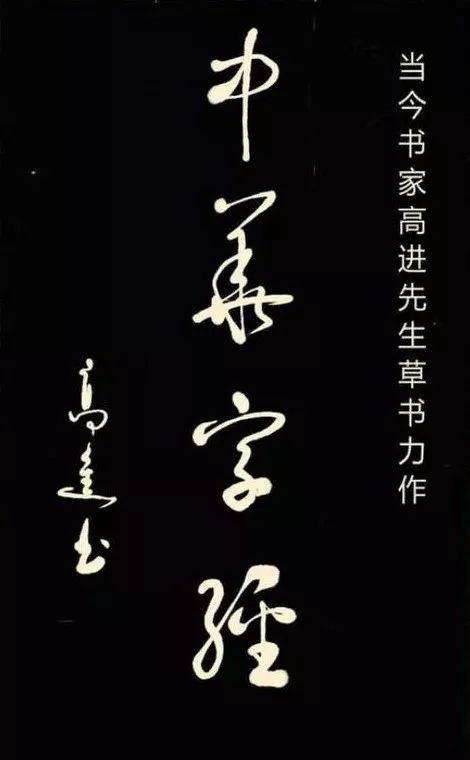 当今书家高进先生草书力作
中华字经
高进书